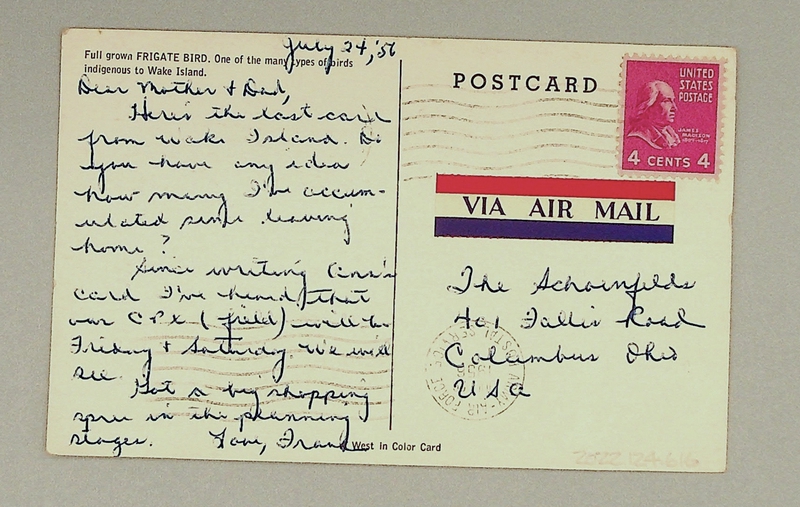 Full grown FRIGATE BIRD. One of the many types of birds
indigenous to Wake Island.
July 24, '56
Dear Mother & Dad,
Here's the last card
from Wake Island. Do
you have any idea
how many I've accum-
ulated since leaving
home?
Since writing
card I've heard that
our CPX (field) will be
Friday & Saturday. We will
see.
Got a big shopping
spree in the planning
stages. Love, Frank
West in Color Card
POSTCARD
UNITED
STATES
POSTAGE
JAMES
MADISON
4 CENTS 4
VIA AIR MAIL
The Schoenfelds
401 Fallis Road
Columbus Ohio
USA
AIR FORCE
2022.124.616